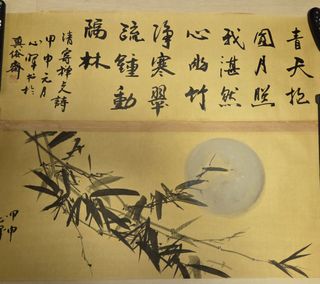 青天抱
圓月照
我湛然
心幽竹
淨寒翠
疏鐘動
隔林
清寄禪詩
甲申元月
心 書於
真俗齋
甲申